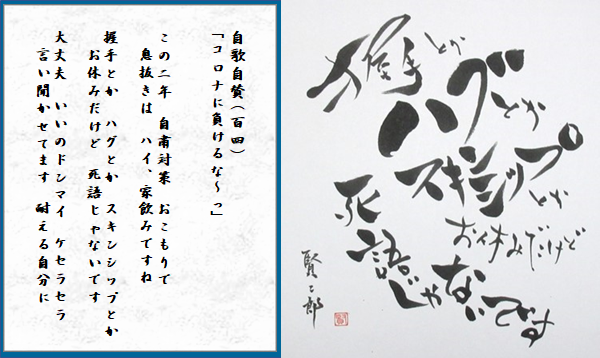 自歌自賛（百四）
「コロナに負けるな～っ」
この二年　自粛対策　おこもりで
息抜きは　ハイ、家飲みですね
握手とか　ハグとか　スキンシップとか
お休みだけど　死語じゃないです
大丈夫　いいのドンマイ　ケセラセラ
言い聞かせてます　耐える自分に
握手とか
ハグとか
スキンシップとか
お休みだけど
死語じゃないです
賢二郎